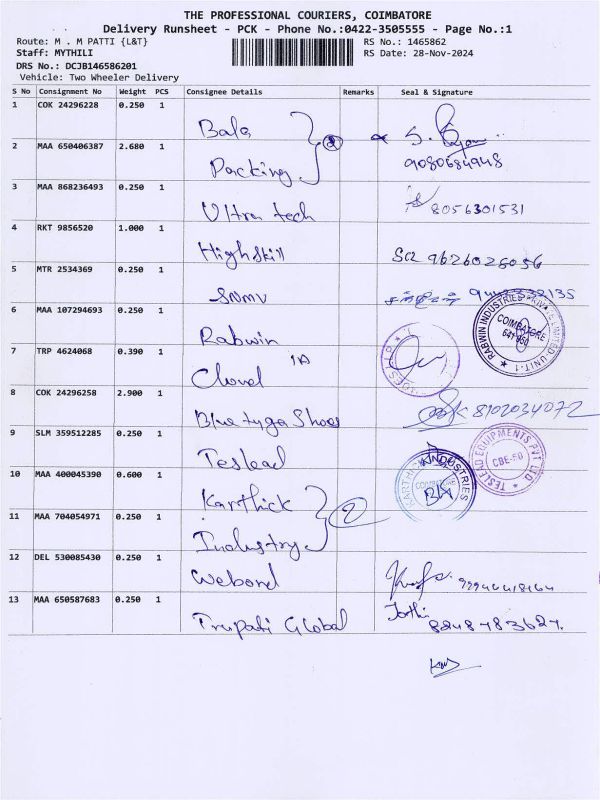 THE PROFESSIONAL COURIERS, COIMBATORE
Delivery Runsheet - PCK - Phone No.:0422-3505555 - Page No.:1
Route: M . M PATTI {L&T} RS No.: 1465862
Staff: MYTHILI RS Date: 28-Nov-2024
DRS No.: DCJB146586201
Vehicle: Two Wheeler Delivery
S No Consignment No Weight PCS Consignee Details Remarks Seal & Signature
1 COK 24296228 0.250 1 Bala
2 MAA 650406387 2.680 1 Packing 2 9080684948
3 MAA 868236493 0.250 1 Ultra tech 8056301531
4 RKT 9856520 1.000 1 Highskill 9626028056
5 MTR 2534369 0.250 1 SNMV
6 MAA 107294693 0.250 1 Rabwin RABWIN INDUSTRIES PRIVATE LIMITED UNIT-1 COIMBATORE
7 TRP 4624068 0.390 1
8 COK 24296258 2.900 1 8102034072
9 SLM 359512285 0.250 1 Teslead TESLEAD EQUIPMENTS PVT LTD CBE-50
10 MAA 400045390 0.600 1 Karthick KARTHICK INDUSTRIES COIMBATORE
11 MAA 704054971 0.250 1 Industry 2
12 DEL 530085430 0.250 1 Webond
13 MAA 650587683 0.250 1 Trupati Global 8248783627